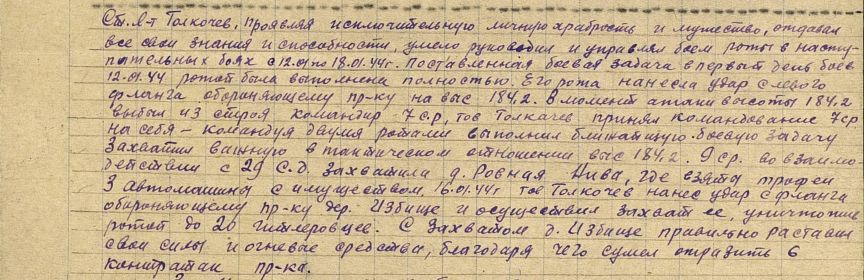 Ст. л-т Толкочев, проявляя исключительную личную храбрость и мужество, отдавал
все свои знания и способности, умело руководил и управлял боем роты в насту-
пательных боях с 12.01 по 18.01.44г. Поставленная боевая задача в первый день боёв
12.01.44 ротой была выполнена полностью. Его рота нанесла удар с левого
фланга обороняющему пр-ку на выс 184,2. В момент атаки высоты 184,2
выбыл из строя командир 7 ср, тов Толкачев принял командование 7 ср
на себя – командуя двумя ротами выполнил ближайшую боевую задачу
Захватил важную в тактическом отношении выс 184,2. 9 ср. во взаимо-
действии с 29 С.Д. захватила д. Ровная Нива, где взяты трофеи
3 автомашины с имуществом. 16.01.44г тов Толкочев нанес удар с фланга
обороняющему пр-ку дер. Избище и осуществил захват ее, уничтожив
ротой до 20 гитлеровцев. С захватом д. Избище правильно расставил
свои силы и огневые средства, благодаря чего сумел отразить 6
контратак пр-ка.